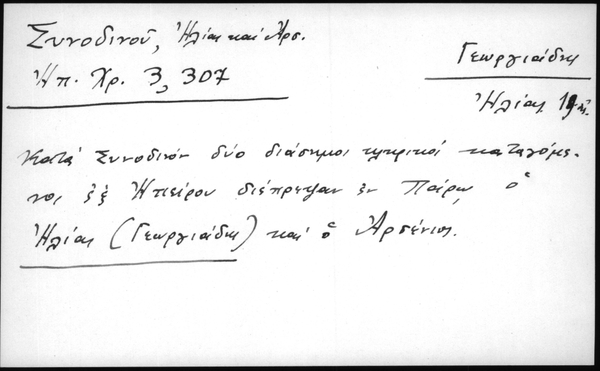 Συνοδινοῦ, Ἠλίας καὶ Ἀρσ.
Ἠπ. Χρ. 3, 307
Γεωργιάδης
Ἠλίας, 19
Κατὰ Συνοδινὸν δύο διάσημοι κληρικοὶ καταγόμε-
νοι ἐξ Ἠπείρου διέπρεψαν ἐν Πάρῳ, ὁ
Ἠλίας (Γεωργιάδης) καὶ ὁ Ἀρσένιος.